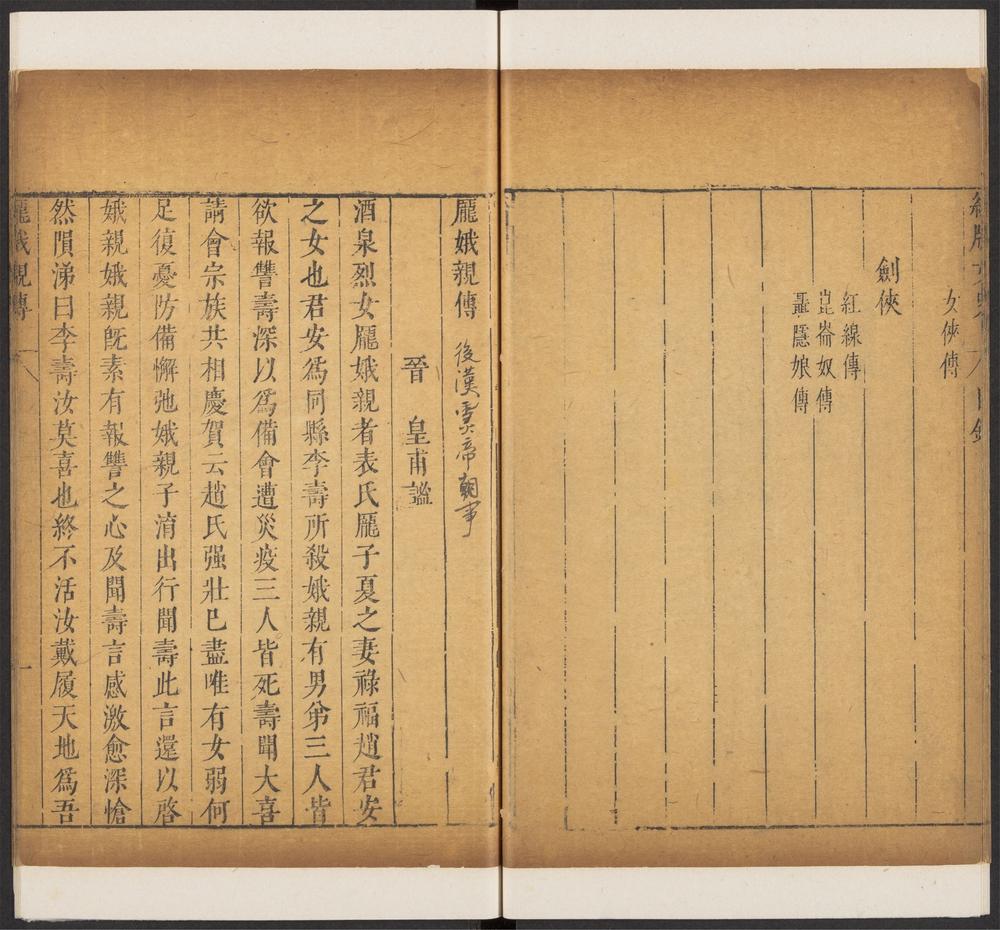 女俠傳
劍俠
紅線傳
崑崙奴傳
聶隱娘傳
龎娥親傳 後漢靈帝朝事
晉 皇甫謐
酒泉烈女龎娥親者表氏龎子夏之妻祿福趙君安
之女也君安爲同縣李壽所殺娥親有男弟三人皆
欲報讐壽深以爲備會遭災疫三人皆死壽聞大喜
請會宗族共相慶賀云趙氏强壯已盡唯有女弱何
足復憂防備懈弛娥親子淯出行聞壽此言還以啓
娥親娥親旣素有報讐之心及聞壽言感激愈深愴
然隕涕曰李壽汝莫喜也終不活汝戴履天地爲吾
龎娥親傳 一